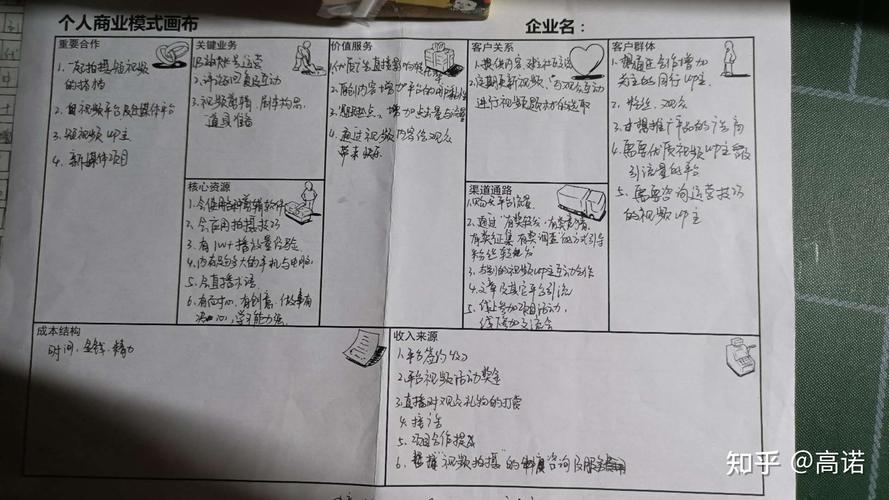 个人商业模式画布
企业名：
重要合作
1. 一起拍摄短视频
的搭档
2. 短视频平台及媒体平台
3. 短视频UP主
4. 新媒体项目
关键业务
运营
2. 评论回复及互动
3. 视频剪辑、剧本构思、
道具准备
核心资源
1. 会使用剪辑软件
2. 会应用拍摄技巧
3. 有1w+播放量经验
4. 内存足够大的手机与电脑
5. 会直播术语
6. 有应对心、有创意、做事有
决心、学习能力强
价值服务
2. 原创内容增加平台的
3. 点、增加点击量与流量
4. 通过视频内容给观众
带来快乐
客户关系
1. 提供内容
2. 定期更新视频、与观众互动
进行视频
渠道通路
1. 购买平台流量
2. 通过“有奖转发、有奖竞猜、
有奖征集、有奖调查”的方式引导
粉丝转发
3. 与别的视频UP主互动合作
4. 文章及其它平台引流
5. 线上参加项目活动，
线下参加交流会
客户群体
1. 增加
关注的同行UP主
2. 粉丝、观众
3. 想推广产品的广告商
4. 需要优质视频UP主
引流量的平台
5. 需要咨询运营技巧
的视频UP主
成本结构
时间、金钱、精力
收入来源
1. 平台签约收入
2. 平台视频活动奖金
3. 直播时观众礼物的打赏
4. 接广告
5. 项目合作提成
6. “视频拍摄”的咨询及服务
知乎 @高诺